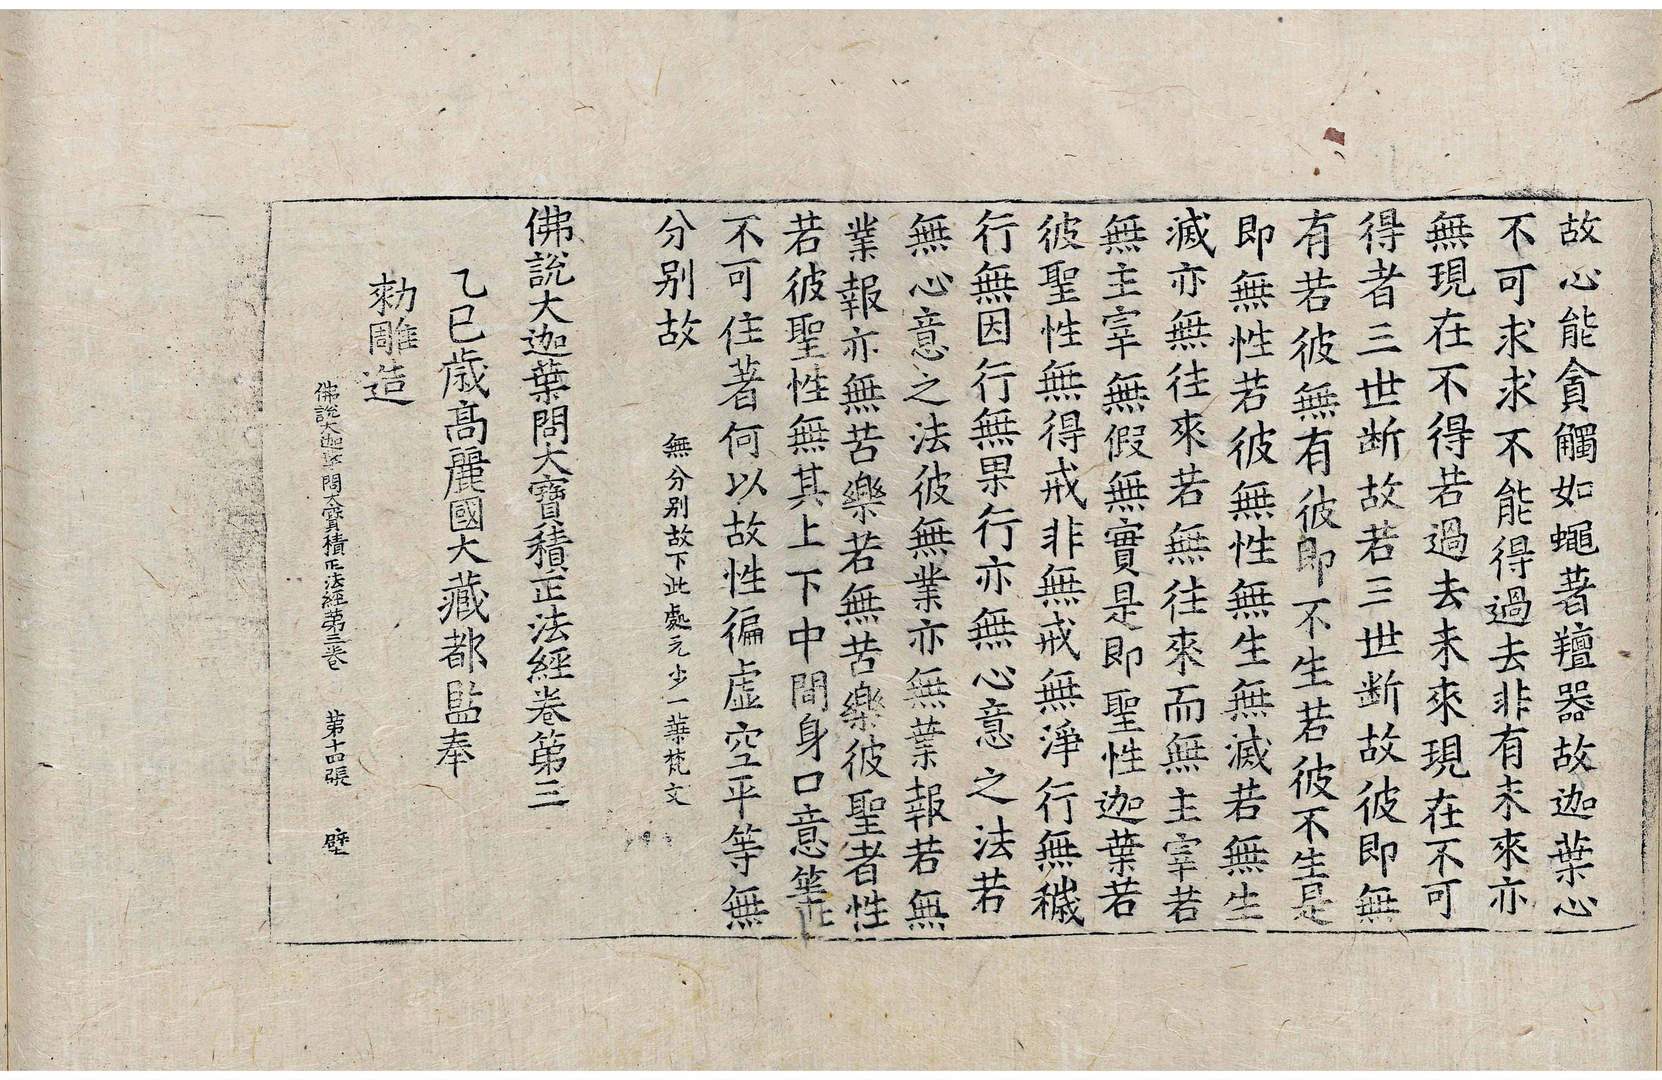 故心能貪觸如蠅著羶器故迦葉心
不可求求不能得過去非有未來亦
無現在不得若過去未來現在不可
得者三世断故若三世断故彼即無
有若彼無有彼即不生若彼不生是
即無性若彼無性無生無滅若無生
滅亦無往來若無往來而無主宰若
無主宰無假無實是即聖性迦葉若
彼聖性無得戒非無戒無淨行無穢
行無因行無果行亦無心意之法若
無心意之法彼無業亦無業報若無
業報亦無苦樂若無苦樂彼聖者性
若彼聖性無其上下中間身口意等
不可住著何以故性徧虛空平等無
分别故
無分别故下此處元少一葉梵文
佛說大迦葉問大寶積正法經卷第三
乙巳歳髙麗國大藏都監奉
勑雕造
佛說大迦葉問大寶積正法經第三卷 第十四張 壁